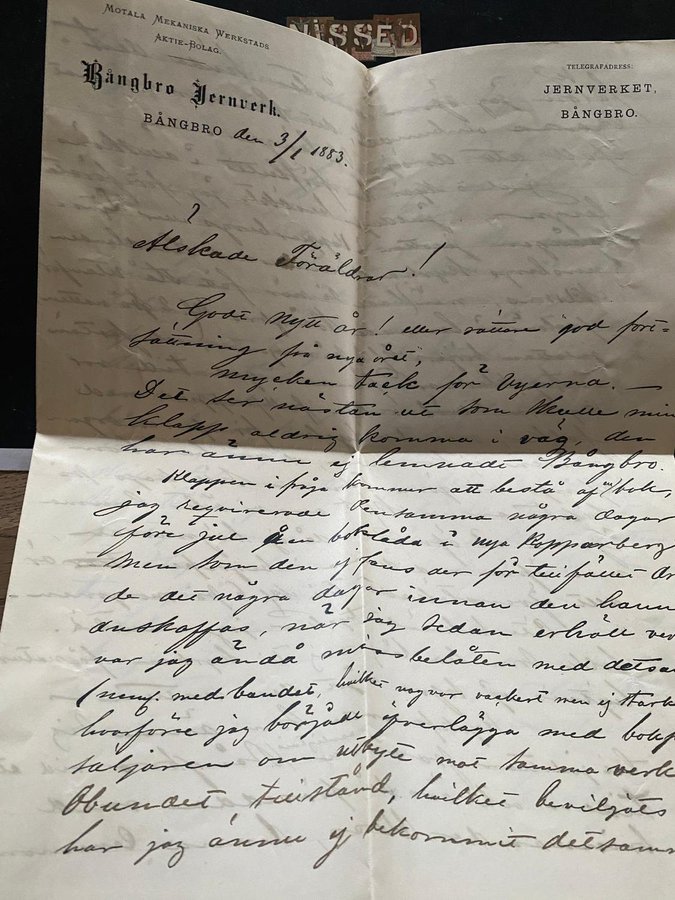 MOTALA MEKANISKA WERKSTADS
AKTIE-BOLAG.
NiSSED
Bångbro Jernverk.
BÅNGBRO den 3/1 1883.
TELEGRAFADRESS:
JERNVERKET,
BÅNGBRO.
Älskade Föräldrar!
Godt nytt år! eller rättare god fort=
sättning på nya året,
mycken tack för vyerna. —
Det ser nästan ut som skulle min
klapp aldrig komma i väg, den
har ännu ej lemnadt Bångbro.
Klappen i fråga kommer att bestå af bok,
jag requirerade densamma några dagar
före jul från boklåda i nya Kopparberg
men som den ej fans der för tillfället
de det några dagar innan den hann
anskaffas, när jag sedan erhöll
var jag ändå missbelåten med
(neml. med bandet, hvilket nog var vackert men ej
hvarföre jag började öfverlägga med
säljaren om utbyte mot samma verk
Obundet tillstånd, hvilket beviljats
har jag ännu ej bekommit